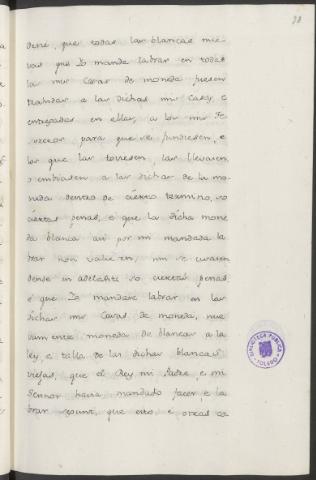 dené, que todas las blancas nue-
vas que Yo mandé labrar en todas
las mis Casas de moneda fuesen
trahidas a las dichas mis Casas, e
entregadas en ellas, a los mis Te-
soreros para que se fundiesen, e
los que las toviesen, las llevasen
o embiasen a las dichas de la mo-
neda dentro de cierto termino, so
ciertas penas, e que la dicha mone-
da blanca asi por mi mandada la-
brar non valiese, nin se
dende en adelante so ciertas penas,
e que Yo mandaré labrar en las
dichas mis Casas de moneda, nue-
vamente moneda de blancas a la
ley, e talla de las dichas blancas
viejas, que el Rey mi Padre, e mi
Sennor havia mandado facer, e la-
brar que esto, e otras co
BIBLIOTECA PUBLICA
TOLEDO